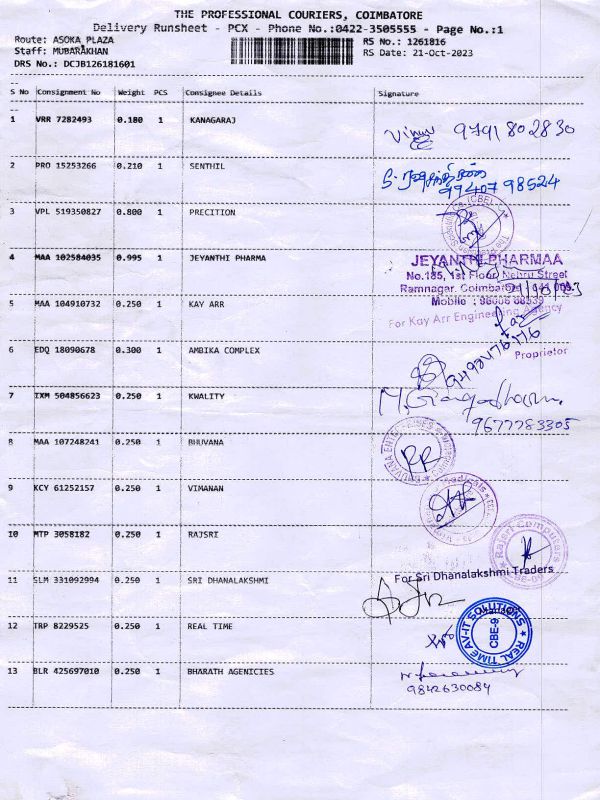 THE PROFESSIONAL COURIERS, COIMBATORE
Delivery Runsheet - PCX - Phone No.:0422-3505555 - Page No.:1
Route: ASOKA PLAZA RS No.: 1261816
Staff: MUBARAKHAN RS Date: 21-Oct-2023
DRS No.: DCJB126181601
S No Consignment No Weight PCS Consignee Details Signature
1 VRR 7282493 0.180 1 KANAGARAJ
9791802830
2 PRO 15253266 0.210 1 SENTHIL
99407 98524
3 VPL 519350827 0.800 1 PRECITION
4 MAA 102584035 0.995 1 JEYANTHI PHARMA
JEYANTHI PHARMAA
No.185, 1st Floor, Nehru Street
Ramnagar, Coimbatore
Mobile :
5 MAA 104910732 0.250 1 KAY ARR
For Kay Arr Engineering Agency
Proprietor
6 EDQ 18090678 0.300 1 AMBIKA COMPLEX
7 IXM 504856623 0.250 1 KWALITY
9677783305
8 MAA 107248241 0.250 1 BHUVANA
BHUVANA ENTERPRISES
RR
9 KCY 61252157 0.250 1 VIMANAN
10 MTP 3058182 0.250 1 RAJSRI
Rajsri Computers
11 SLM 331092994 0.250 1 SRI DHANALAKSHMI
For Sri Dhanalakshmi Traders
12 TRP 8229525 0.250 1 REAL TIME
REAL TIME AV-IT SOLUTIONS
CBE-9
13 BLR 425697010 0.250 1 BHARATH AGENICIES
9842630084